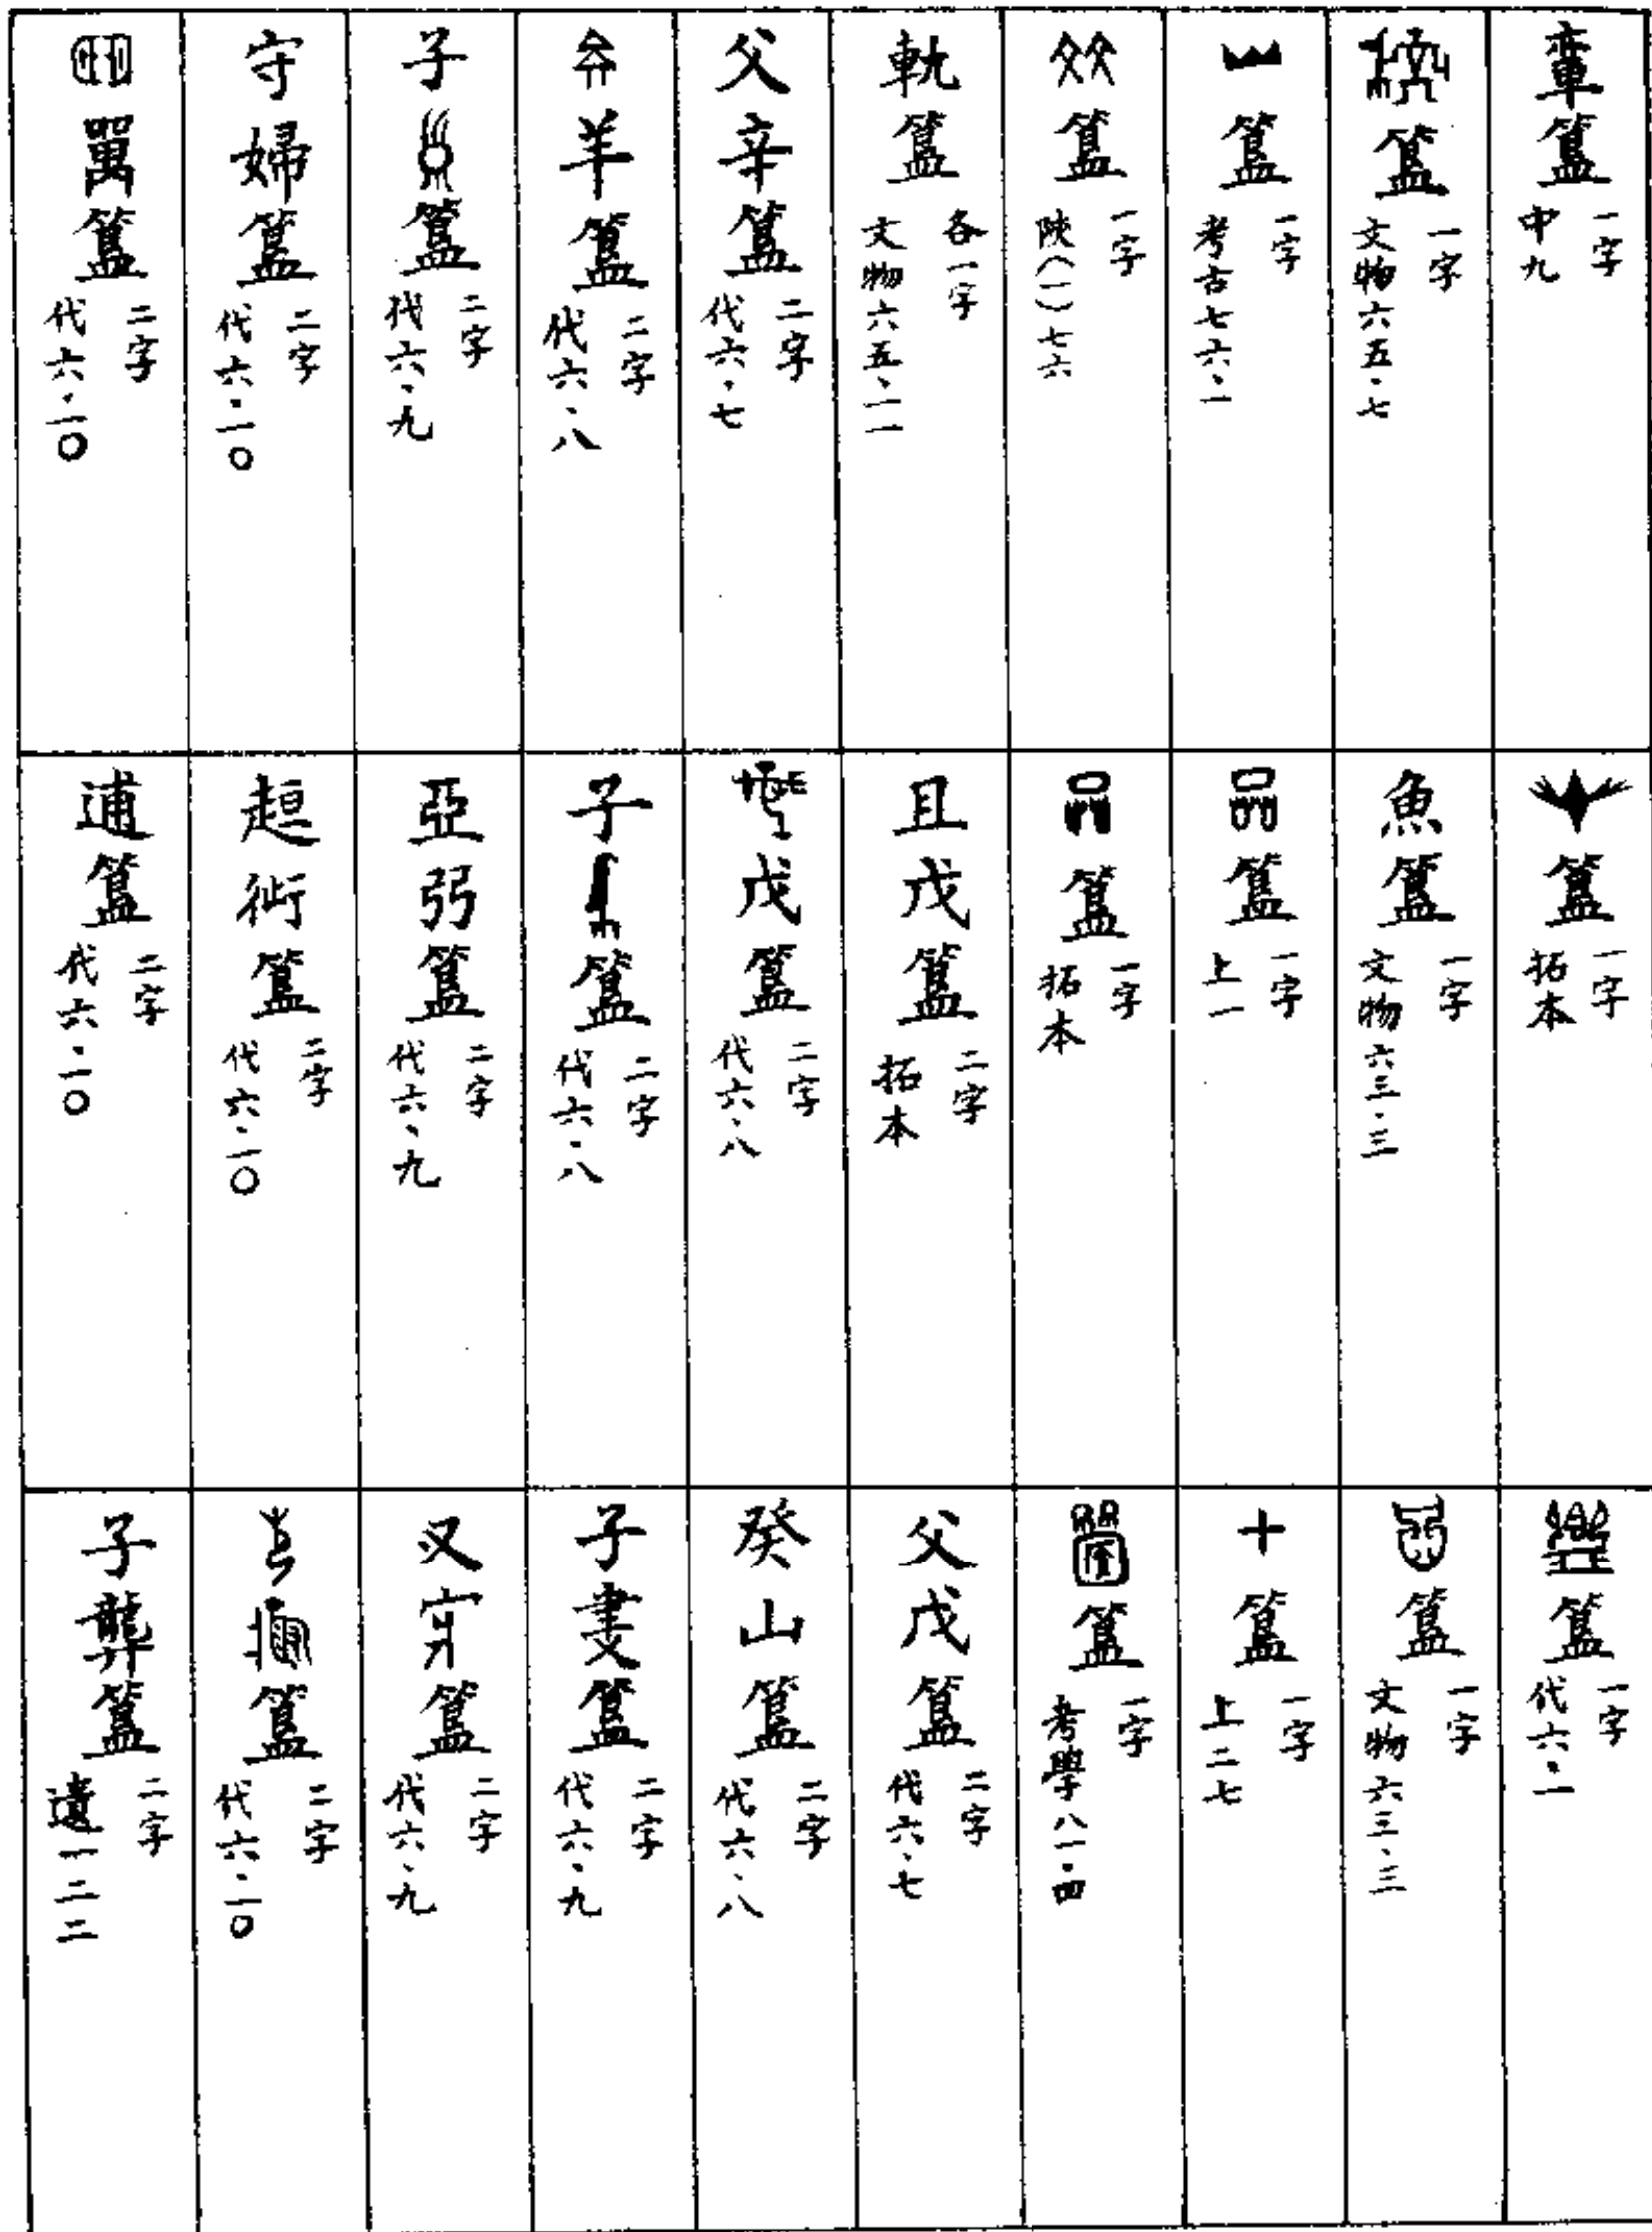 簋 一字 中九
簋 一字 文物六五·七
簋 一字 考古七六·一
簋 一字 陝(一)七六
軝簋 各一字 文物六五·一一
父辛簋 二字 代六·七
羊簋 二字 代六·八
子簋 二字 代六·九
守婦簋 二字 代六·一〇
簋 二字 代六·一〇
簋 一字 拓本
魚簋 一字 文物六三·三
簋 一字 上一
簋 一字 拓本
且戊簋 二字 拓本
戊簋 二字 代六·八
子簋 二字 代六·八
亞弜簋 二字 代六·九
趄簋 二字 代六·一〇
逋簋 二字 代六·一〇
簋 一字 代六·一
簋 一字 文物六三·三
十簋 一字 上二七
簋 一字 考學八一·四
父戊簋 二字 代六·七
癸山簋 二字 代六·八
子妻簋 二字 代六·九
簋 二字 代六·九
簋 二字 代六·一〇
子龏簋 二字 遺一二二